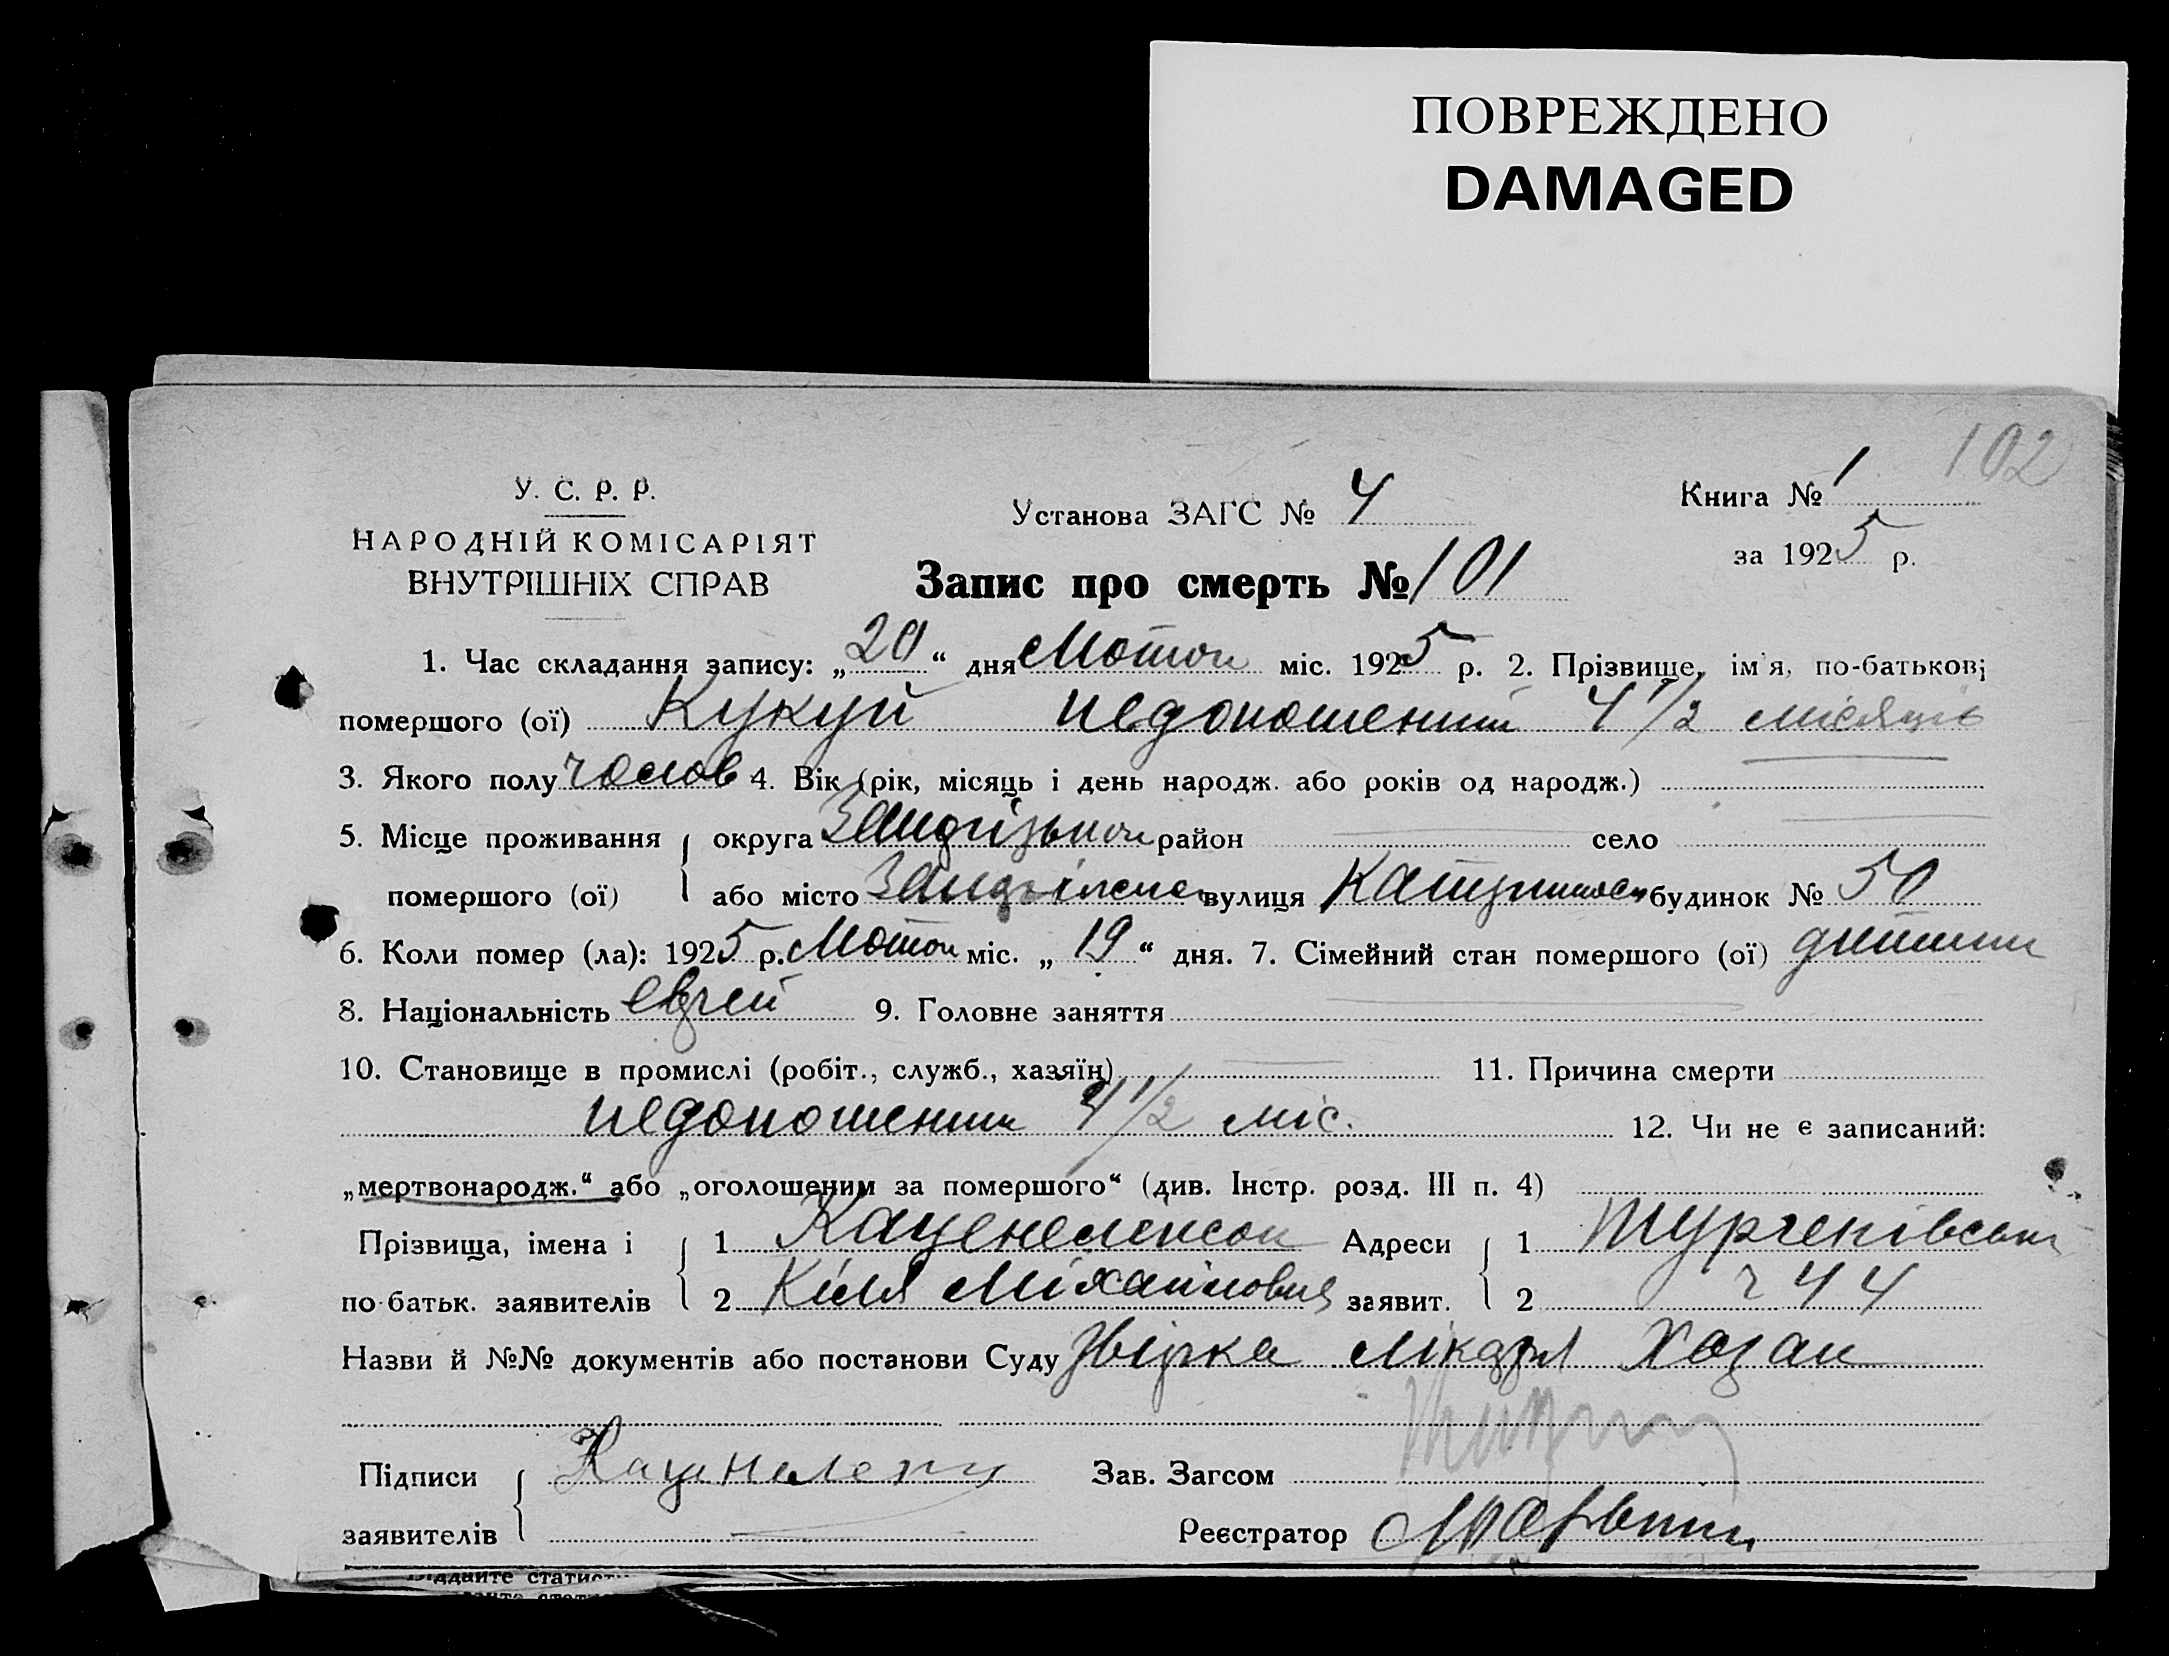 ПОВРЕЖДЕНО
DAMAGED
102
У. С. Р. Р.
НАРОДНІЙ КОМІСАРІЯТ
ВНУТРІШНІХ СПРАВ
Установа ЗАГС № 4
Книга № 1
за 1925 р.
Запис про смерть № 101
1. Час складання запису: „20“ дня міс. 1925 р. 2. Прізвище, ім'я, по-батькові
помершого (ої) Кукуй недоношений 4 1/2 місяців
3. Якого полу чолов 4. Вік (рік, місяць і день народж. або років од народж.)
5. Місце проживання округа район село
помершого (ої) або місто вулиця будинок № 50
6. Коли помер (ла): 1925 р. міс. „19“ дня. 7. Сімейний стан помершого (ої) дитина
8. Національність еврей 9. Головне заняття
10. Становище в промислі (робіт., служб., хазяїн) 11. Причина смерти
недоношений 4 1/2 міс. 12. Чи не є записаний:
„мертвонародж.“ або „оголошеним за помершого“ (див. Інстр. розд. III п. 4)
Прізвища, імена і 1 Каценеленсон Адреси 1
по-батьк. заявителів 2 Кіля Міхайлович заявит. 2 ч 44
Назви й №№ документів або постанови Суду лікаря Хазан
Підписи Зав. Загсом
заявителів Реєстратор